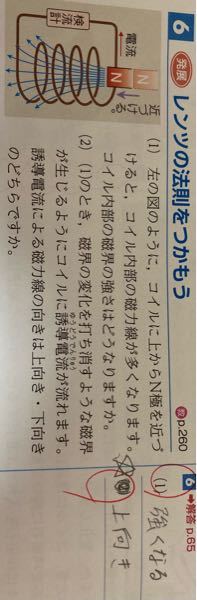 6 発展 レンツの法則をつかもう 教p.260
検流計
電流
近づける。
N
N
(1) 左の図のように，コイルに上からN極を近づ
けると，コイル内部の磁力線が多くなります。
コイル内部の磁界の強さはどうなりますか。
(2) (1)のとき，磁界の変化を打ち消すような磁界
が生じるようにコイルに誘導電流が流れます。
ゆうどうでんりゅう
誘導電流による磁力線の向きは上向き・下向き
のどちらですか。
6 ➡解答 p.65
(1) 強くなる
上向き